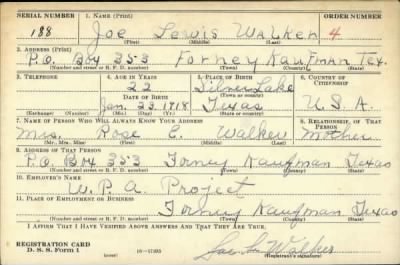 SERIAL NUMBER 1. NAME (Print) ORDER NUMBER
188 Joe Lewis Walker 4
(First) (Middle) (Last)
2. ADDRESS (Print)
P.O. Box 353 Forney Kaufman Tex.
(Number and street or R. F. D. number) (Town) (County) (State)
3. TELEPHONE 4. AGE IN YEARS 5. PLACE OF BIRTH 6. COUNTRY OF CITIZENSHIP
22 Silver Lake
(Town or county)
DATE OF BIRTH
Jan. 23. 1918 Texas U.S.A.
(Exchange) (Number) (Mo.) (Day) (Yr.) (State or country)
7. NAME OF PERSON WHO WILL ALWAYS KNOW YOUR ADDRESS 8. RELATIONSHIP OF THAT PERSON
Mrs. Rose E. Walker Mother
(Mr., Mrs., Miss) (First) (Middle) (Last)
9. ADDRESS OF THAT PERSON
P.O. Box 353 Forney Kaufman Texas
(Number and street or R. F. D. number) (Town) (County) (State)
10. EMPLOYER'S NAME
W. P. A. Project
11. PLACE OF EMPLOYMENT OR BUSINESS
Forney Kaufman Texas
(Number and street or R. F. D. number) (Town) (County) (State)
I AFFIRM THAT I HAVE VERIFIED ABOVE ANSWERS AND THAT THEY ARE TRUE.
REGISTRATION CARD
D. S. S. Form 1 Joe L. Walker
(Registrant's signature)